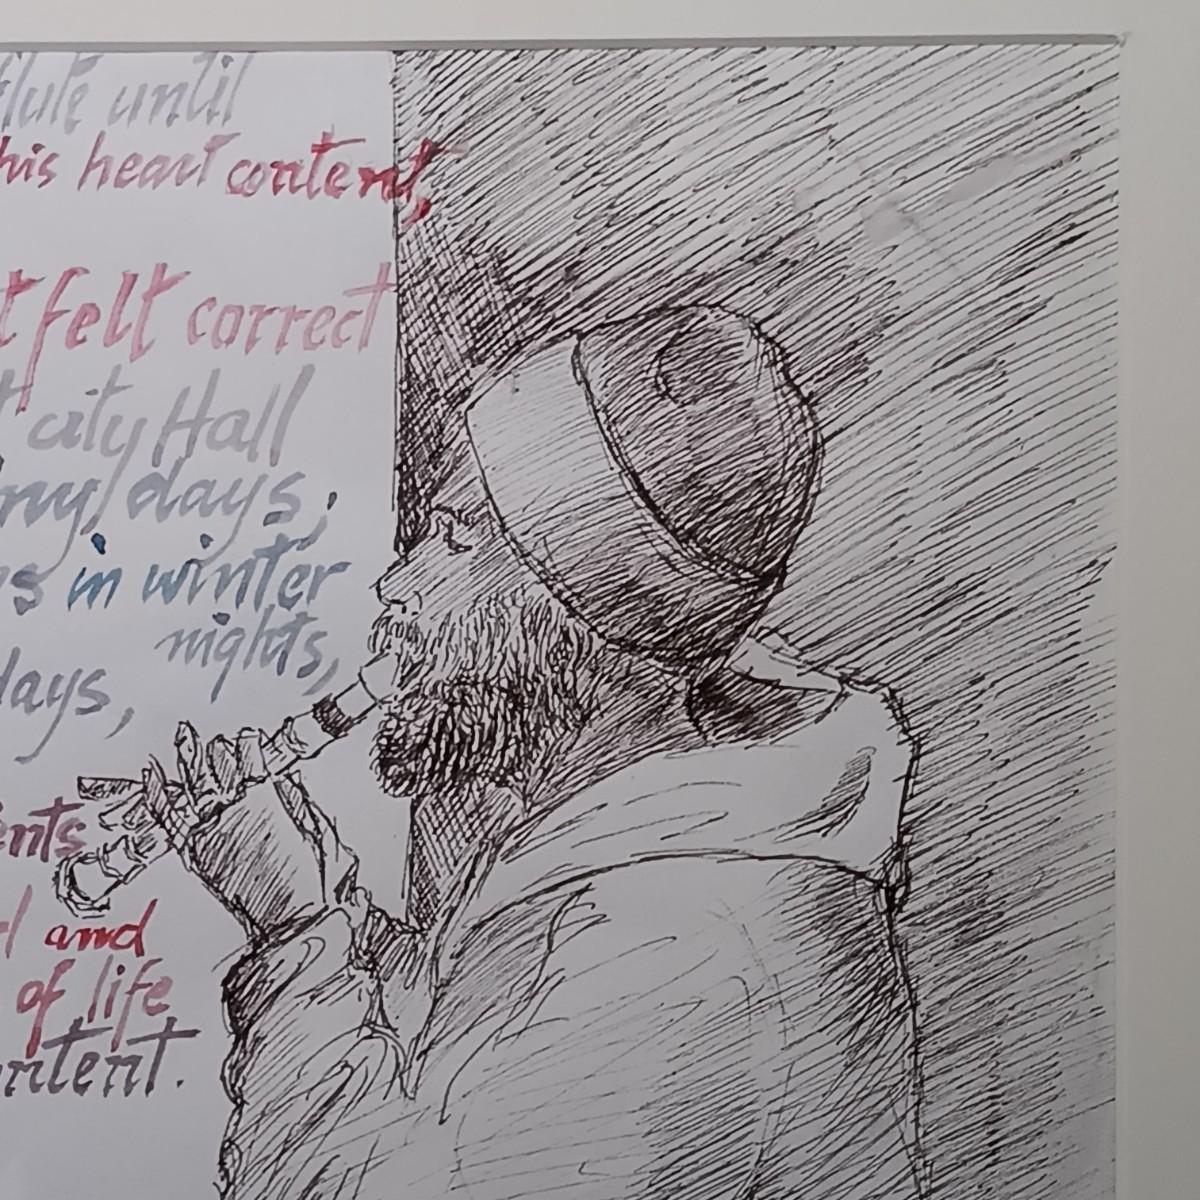 flute until
his heart content,
t felt correct
t city Hall
ny days,
ys in winter
nights,
days,
ents
d and
of life
ontent.